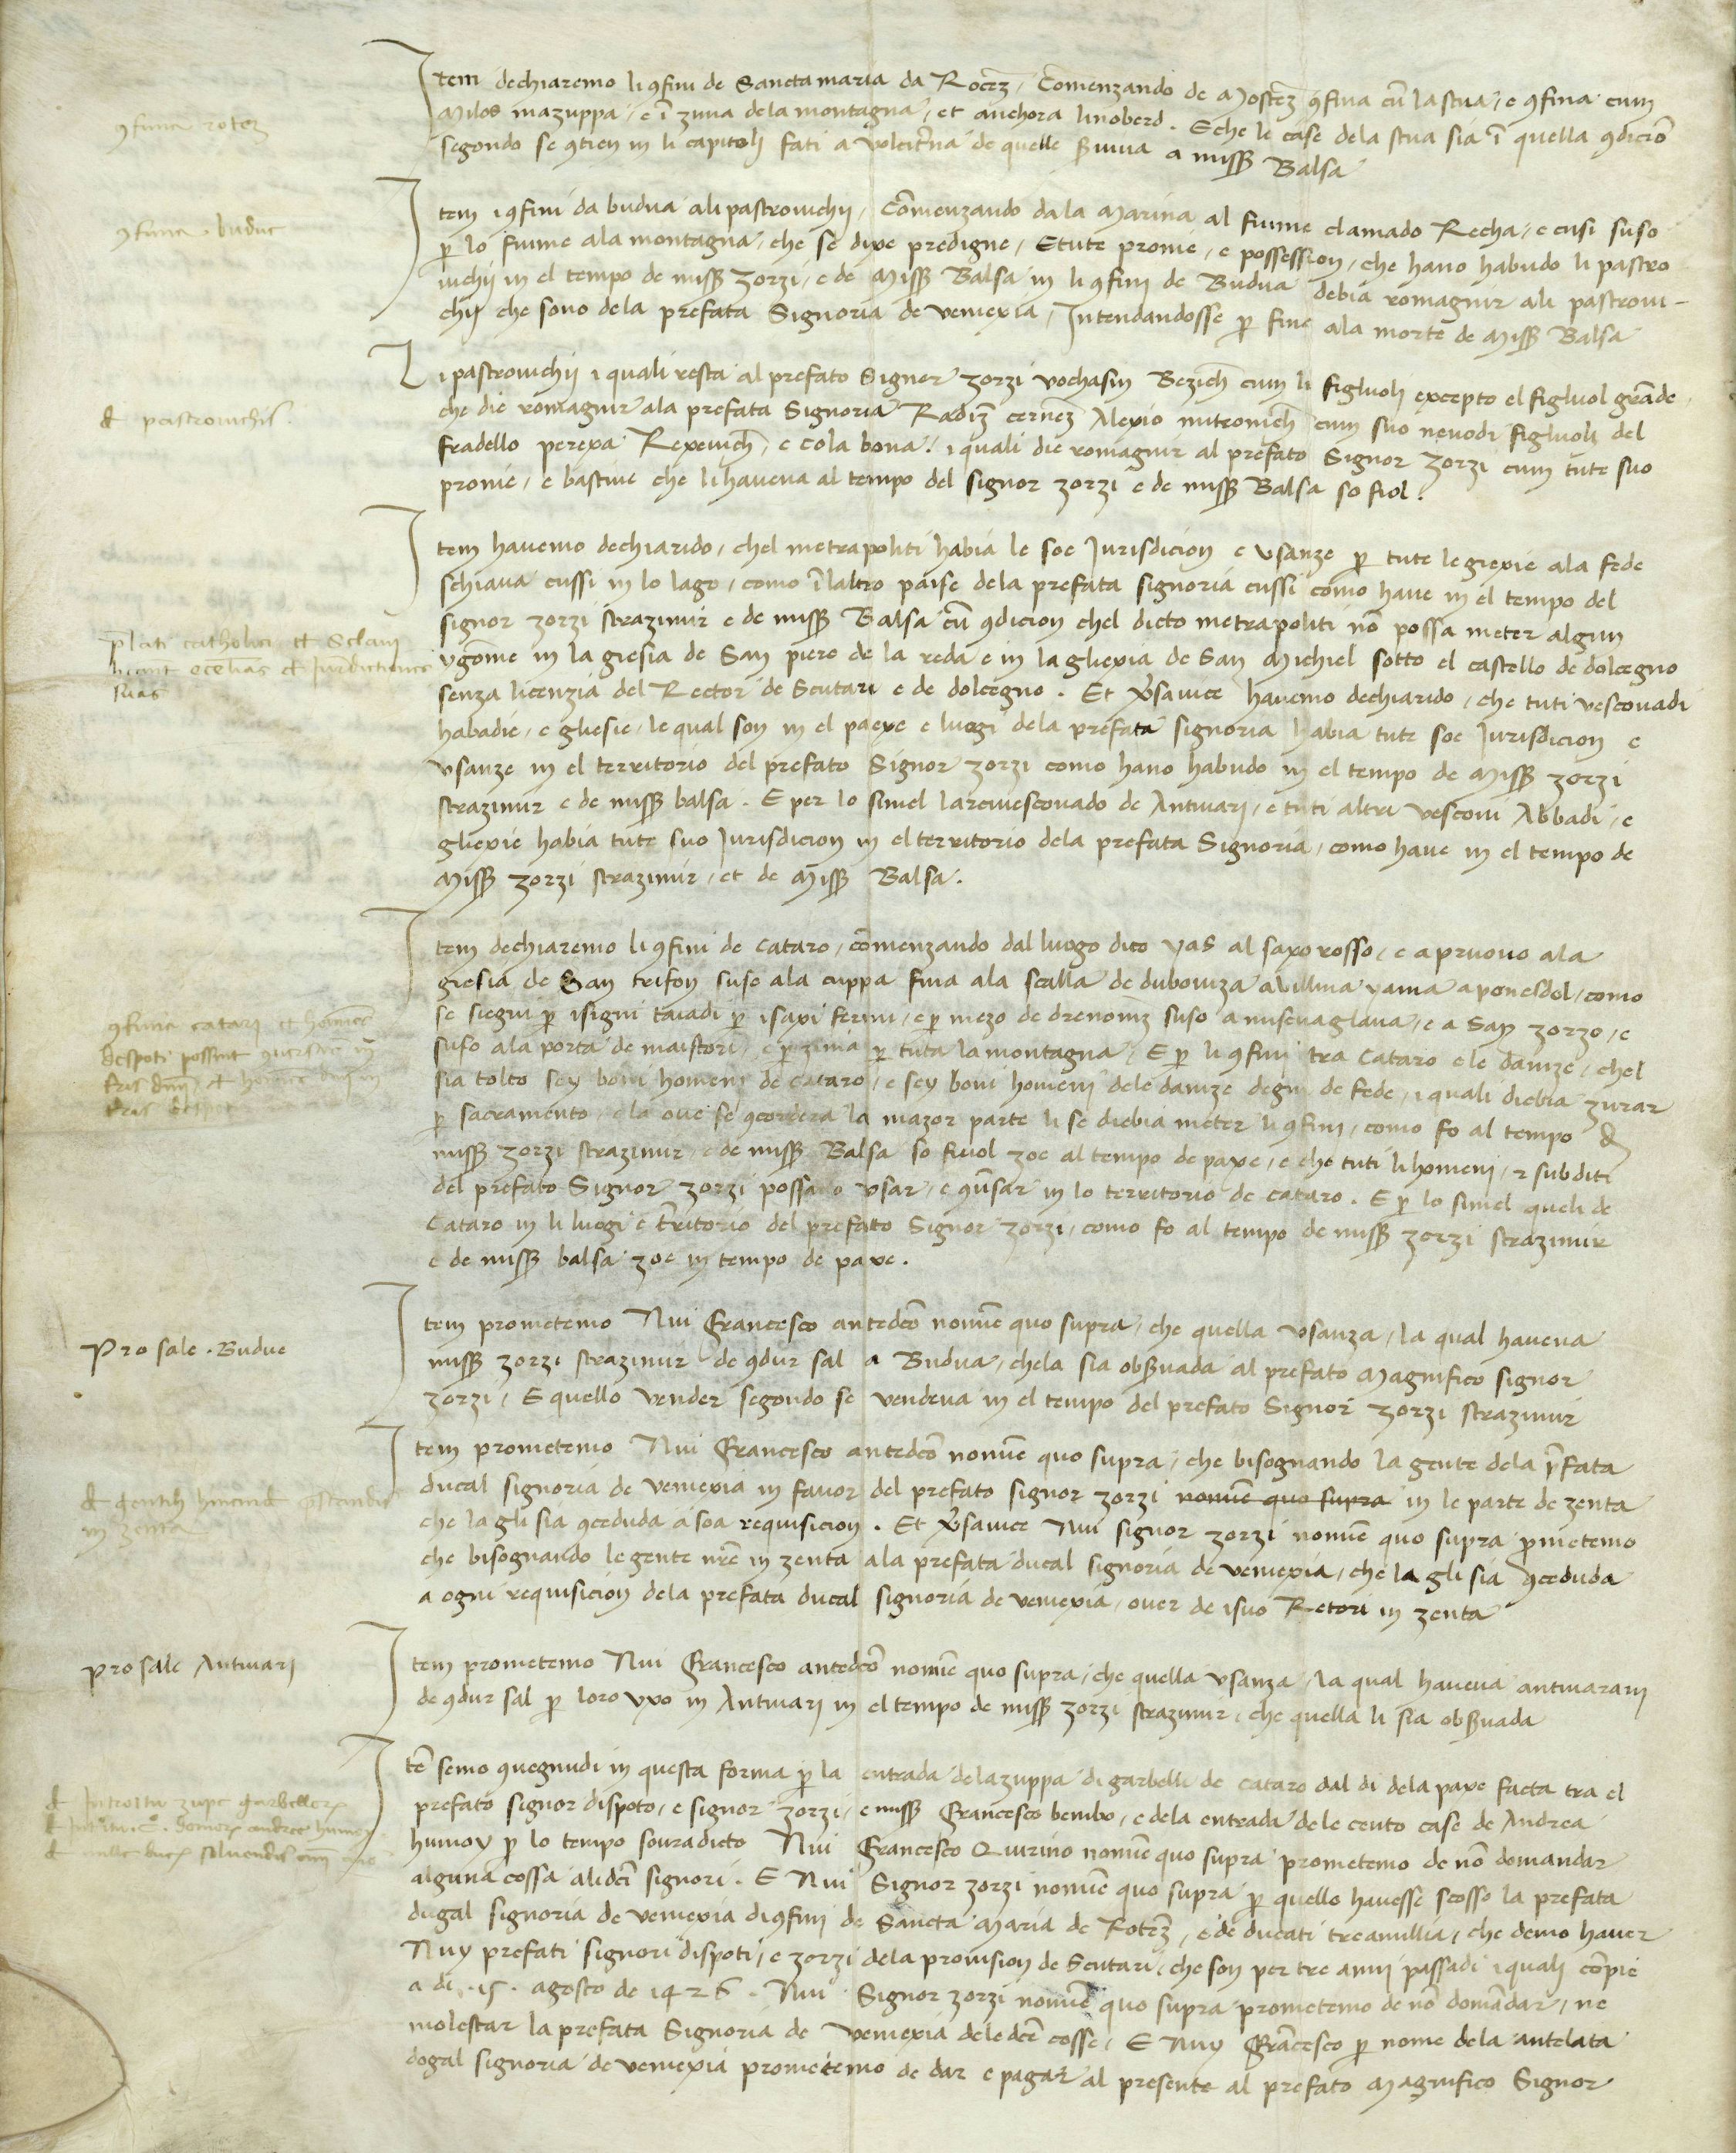 Item dechiaremo li ꝯfini de Sancta maria da Rotez, Comenzando de Mostez ꝯfina cū la stua, e ꝯfina cum
Milos mazuppa, e ī zima dela montagna, et anchora linoberd. E che le case dela stua sia ī quella ꝯdiciō
segondo se ꝯtien in li capitoli fati a de quelle a miss Balsa
ꝯfinia rotez
Item i ꝯfini da budua ali pastrovichij, Comenzando dala Marina al fiume clamado Recha, e cusi suso
ꝑ lo fiume ala montagna, che se dixe predigne, E tute pronie, e possession, che hano habudo li pastro
ꝯfinia buduc
vichij in el tempo de miss Zorzi, e de Miss Balsa in li ꝯfini de Budua debia romagnir ali pastrovi-
chij che sono dela prefata Signoria de venexia, Intendandosse ꝑ fine ala morte de Miss Balsa
Li pastrovichij i quali resta al prefato Signor Zorzi vochasin Bezich cum li figluoli excepto el figluol grande,
che die romagnir ala prefata Signoria Radiz cernez Alexio mitrovich cum suo nevodi figluoli del
d pastrovichis.
fradello perexa Rexevich, e cola bona, i quali die romagnir al prefato Signor Zorzi cum tute suo
pronie, e bastine che li haveva al tempo del signor Zorzi e de miss Balsa so fiol.
Item havemo dechiarido, chel metrapoliti habia le soe Iurisdicion e usanze ꝑ tute le giexie ala fede
schiava cussi in lo lago, como ī laltro paise dela prefata signoria cussi como have in el tempo del
signor Zorzi strazimir e de miss Balsa cū ꝯdicion chel dicto metrapoliti nō possa meter algun
vgome in la giesia de San piero de la reda e in la gliexia de San Michiel sotto el castello de dolcegno
plati catholici et Sclavi
hēant ecclias et Iurdictiones
suas
senza licenzia del Rector de Scutari e de dolcegno. Et vsavice havemo dechiarido, che tuti vescovadi
habadie, e gliesie, le qual son in el paexe e luogi dela prefata signoria habia tute soe Iurisdicion e
usanze in el territorio del prefato Signor Zorzi como hano habudo in el tempo de Miss Zorzi
strazimir e de miss balsa. E per lo simel larcivescovado de Antivari, e tuti altri vescovi Abbadi, e
gliexie habia tute suo Iurisdicion in el territorio dela prefata Signoria, como have in el tempo de
Miss Zorzi strazimir, et de Miss Balsa.
Item dechiaremo li ꝯfini de cataro, comenzando dal luogo dito vas al saxo rosso, e a pruovo ala
giesia de San trifon suso ala cuppa fina ala scalla de duboviza a villina vama a ponesdol, como
se siegui ꝑ i signi taiadi ꝑ i saxi fermi, e ꝑ mezo de drenoviz suso a misevaglava, e a San Zorzo, e
suso ala porta de maistori, e ꝑ zima ꝑ tuta la montagna, E ꝑ li ꝯfini tra Cataro e le danize, chel
ꝯfinia catari et homīes
despoti possint ꝯversare in
tris dnii et homīes dnii in
tris despot
sia tolto sey boni homeni de cataro, e sey boni homeni dele danize degni de fede, i quali diebia zurar
ꝑ sacramento, e la ove se ꝯcordera la mazor parte li se diebia meter li ꝯfini, como fo al tempo d
miss Zorzi strazimir, e de miss Balsa so fiuol zoe al tempo de paxe, e che tuti li homeni, e subditi
del prefato Signor Zorzi possano usar, e ꝯūsar in lo territorio de cataro. E ꝑ lo simel queli de
Cataro in li luogi e t̄ritorio del prefato Signor Zorzi, como fo al tempo de miss Zorzi strazimir
e de miss balsa zoe in tempo de paxe.
Item prometemo Nui Francesco antedcō noīe quo supra, che quella usanza, la qual haveva
Pro sale. Budue
miss Zorzi strazimir de ꝯdur sal a Budua, chela sia obs̄vada al prefato Magnifico signor
Zorzi, E quello vender segondo se vendeva in el tempo del prefato Signor Zorzi strazimir
Item prometemo Nui Francesco antedcō noīe quo supra, che bisognando la gente dela p̄fata
ducal signoria de venexia in favor del prefato signor Zorzi noīe quo supra in le parte de zenta
d gentib hincind p̄standis
in zenta
che la gli sia ꝯceduda a soa requisicion. Et vsavice Nui signor Zorzi noīe quo supra ꝓmetemo
che bisognando le gente nr̄e in zenta ala prefata ducal signoria de venexia, che la gli sia ꝯceduda
a ogni requisicion dela prefata ducal signoria de venexia, over de i suo Retori in zenta
pro sale Antivari
Item prometemo Nui Francesco antedcō noīe quo supra, che quella usanza, la qual haveva antivarani
de ꝯdur sal ꝑ loro uxo in Antivari in el tempo de miss Zorzi strazimir, che quella li sia obs̄vada
Itē semo ꝯvegnudi in questa forma ꝑ la entrada dela zuppa di garbelli de cataro dal di dela paxe facta tra el
prefato signor dispoto, e signor Zorzi, e miss Francesco bembo, e dela entrada dele cento case de Andrea
d Introitu zupe garbellorz
d introitu C. domorz andree humoy
humoy ꝑ lo tempo souradicto Nui Francesco Quirino noīe quo supra prometemo de nō domandar
alguna cossa ali dcī signori. E Nui Signor Zorzi noīe quo supra ꝑ quello havesse scosso la prefata
dugal signoria de venexia di ꝯfini de Sancta Maria de Rotez, e de ducati tre amillia, che demo haver
Nuy prefati signori dispoti, e Zorzi dela provision de Scutari, che son per tre anni passadi i quali cōpie
a di .15. agosto de 1426. Nui Signor Zorzi noīe quo supra prometemo de nō domādar, ne
molestar la prefata Signoria de venexia dele dcē cosse, E Nuy Frācesco ꝑ nome dela antelata
dogal signoria de venexia prometemo de dar e pagar al presente al prefato Magnifico Signor